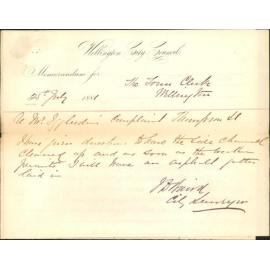 Wellington City Council
Memorandum for
The Town Clerk
Wellington
25th July 1881
to Mr complaint Thompson St
I have given directions to have the side channel
cleaned up and as soon as the weather
permits I will have an asphalt gutter
laid in
J D Baird
City Surveyor